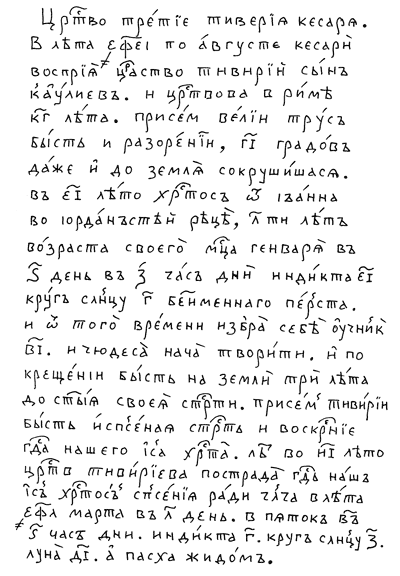 Цр҃тво тре́тїе тиверїѧ кесарѧ.
В лѣта ҂ефе҃і по а́вгусте кесарѝ
воспрїѧ̀ цр҃ство тивирїй сы́нъ
ка́ѵлиевъ. и цр҃твова в ри́мѣ
к҃г лѣ́та. присе́м ве́лїи тру́съ
бы́сть и разоре́нїи, г҃і градо́въ
да́же и҆̀ до землѧ̀ сокруши́шасѧ.
въ е҃і лѣ́то хр҃тосъ ѿ іѡа́нна
во іорда́нъстѣй рѣцѣ̀, л҃ ти лѣ́тъ
во́зраста своего̀ мц҃а генварѧ̀ въ
ѕ҃ день въ з҃ ча́съ днѝ инди́кта е҃і
кру́гъ слн҃цу г҃ бе҆именнаго пе́рста.
и ѿ того̀ вре́мени избра̀ себѣ̀ оуч҆ни҃къ
в҃і. и чюдеса̀ нача̀ твори́ти. и҆̀ по
креще́нїи бы́сть на землѝ трѝ лѣ́та
до ст҃ы́ѧ своеѧ̀ стр҃ти. присе́м тиви́рїи
бы́сть и҆сп҃се́наѧ стр҃ть и воскр҃нїе
гд҃а нашего і҃са хр҃та̀. лѣ҃ во и҃і лѣто
црт҃в тиви́рїева пострада̀ гд҃ь на́шъ
і҃съ хр҃то́съ сп҃се́нїѧ ра́ди чл҃ча в лѣ́та
҂ефл҃ марта в л҃ день. в пѧтокъ въ
ѕ҃ часъ дни. инди́кта г҃. кругъ слн҃цу з҃.
луна̀ д҃і. а҆̀ пасха жидо́мъ.